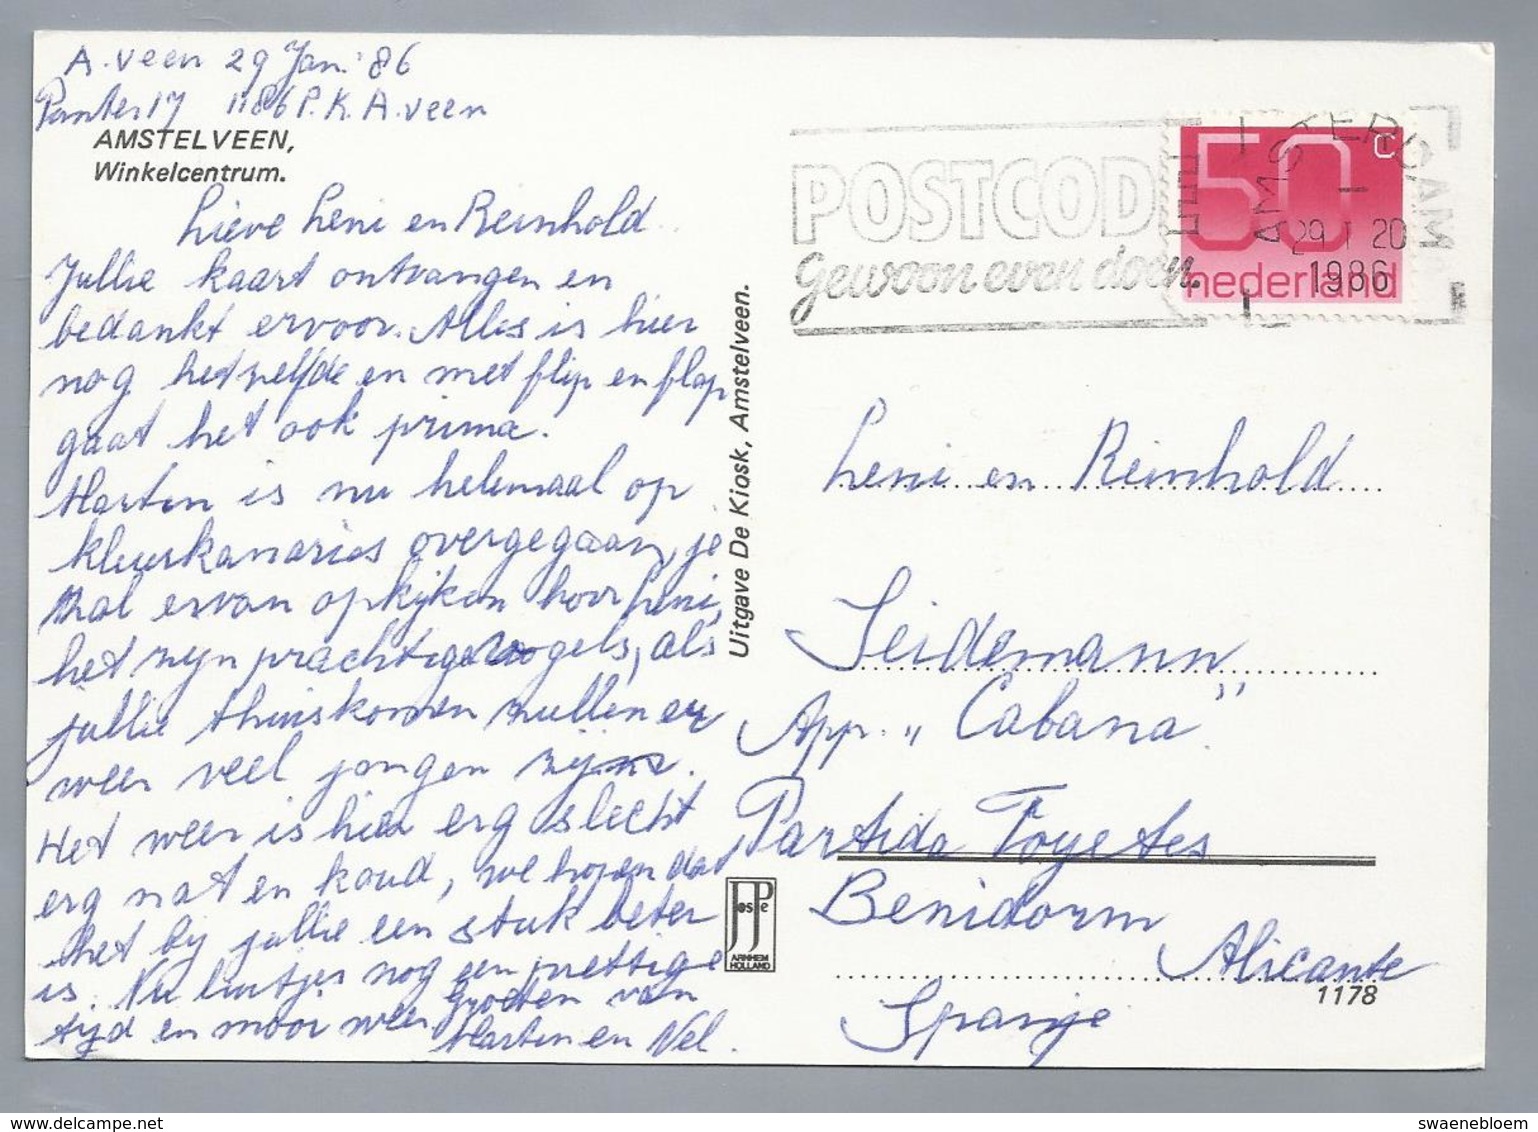 A.veen 29 Jan. '86
Panter 17 1186 P.K. A.veen
AMSTELVEEN,
Winkelcentrum.
Lieve Leni en Reinhold.
Jullie kaart ontvangen en
bedankt ervoor. Alles is hier
nog hetzelfde en met flip en flap
gaat het ook prima.
Marten is nu helemaal op
kleurkanaries overgegaan, je
zal ervan opkijken hoor Leni,
het zijn prachtige vogels, als
jullie thuiskomen zullen er
weer veel jongen zijn.
Het weer is hier erg slecht
erg nat en koud, we hopen dat
het bij jullie een stuk beter
is. Nu luitjes nog een prettige
tijd en maar weer Groeten van
Marten en Nel.
Uitgave De Kiosk, Amstelveen.
JosPe
ARNHEM
HOLLAND
POSTCODE
Gewoon even doen.
AMSTERDAM
29 I 20
1986
50 c
nederland
Leni en Reinhold
Seidemann
App. „Cabana"
Partida Foyetes
Benidorm
Alicante
1178
Spanje
swaenebloem
www.delcampe.net